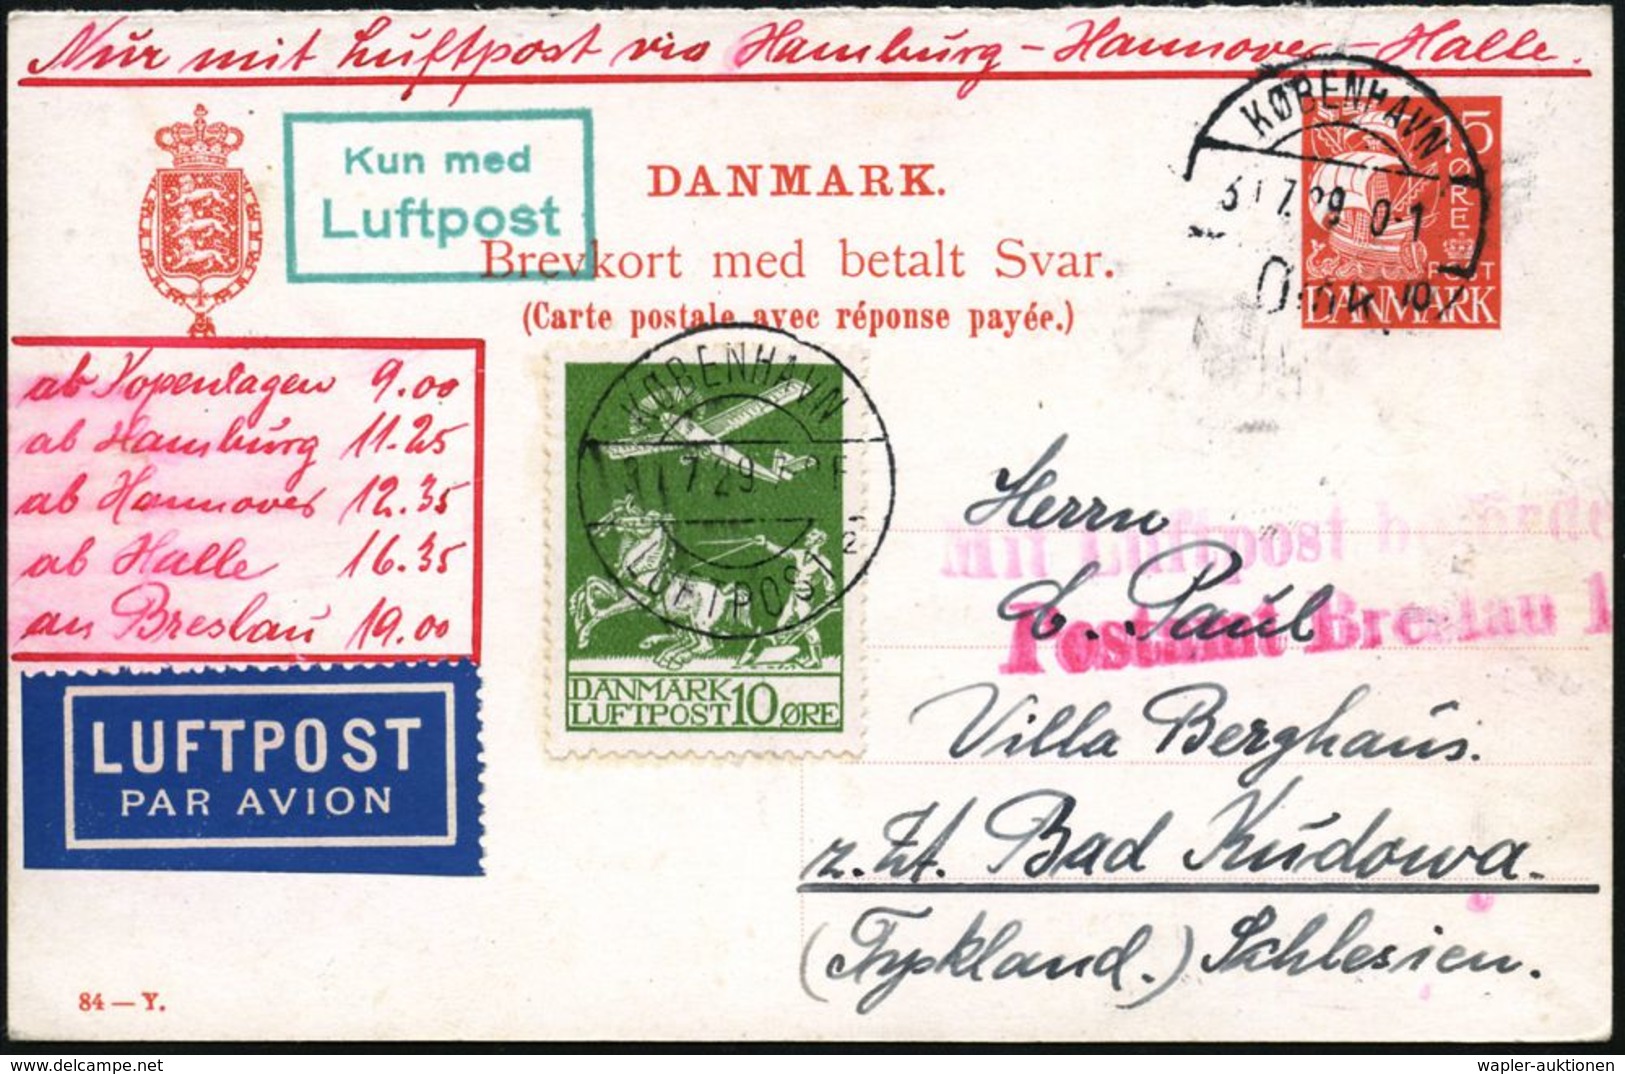 Nur mit Luftpost via Hamburg - Hannover - Halle.
Kun med
Luftpost
DANMARK.
Brevkort med betalt Svar.
(Carte postale avec réponse payée.)
KØBENHAVN
31.7.29 0-1
15
ØRE
POST
DANMARK
ab Kopenhagen 9.00
ab Hamburg 11.25
ab Hannover 12.35
ab Halle 16.35
an Breslau 19.00
KØBENHAVN
31.7.29
LUFTPOST
2
DANMARK
LUFTPOST 10 ØRE
LUFTPOST
PAR AVION
Mit Luftpost
Postamt Breslau 1
Herrn
Paul
Villa Berghaus.
z. Zt. Bad Kudowa.
Schlesien.
84 — Y.
wapler-auktionen